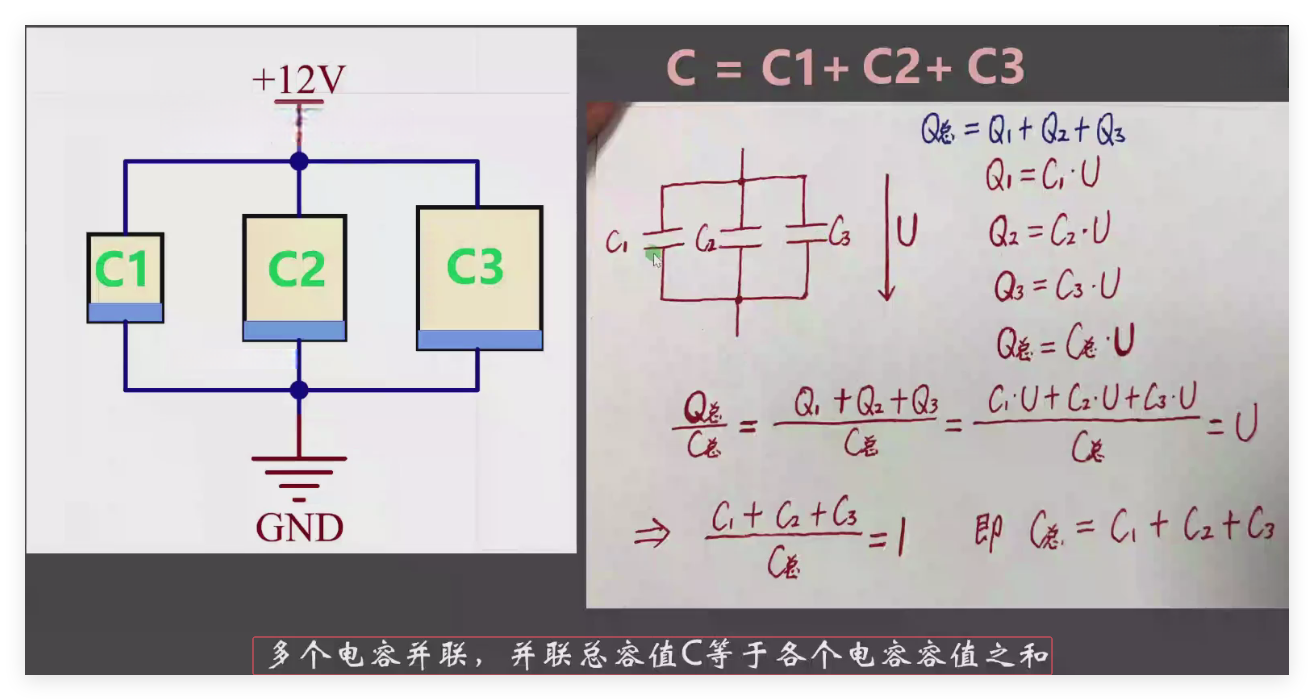 +12V
C1
C2
C3
GND
C = C1+ C2+ C3
Q总 = Q₁ + Q₂ + Q₃
Q₁ = C₁·U
Q₂ = C₂·U
Q₃ = C₃·U
Q总 = C总·U
C₁
C₂
C₃
U
Q总/C总 = (Q₁ + Q₂ + Q₃)/C总 = (C₁·U + C₂·U + C₃·U)/C总 = U
⇒ (C₁ + C₂ + C₃)/C总 = 1 即 C总 = C₁ + C₂ + C₃
多个电容并联，并联总容值C等于各个电容容值之和